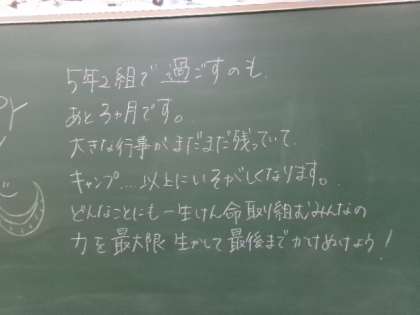 PY
5年2組で過ごすのも、
あと3ヵ月です。
大きな行事がまだまだ残っていて、
キャンプ....以上にいそがしくなります。
どんなことにも一生けん命取り組むみんなの
力を最大限生かして最後までかけぬけよう!